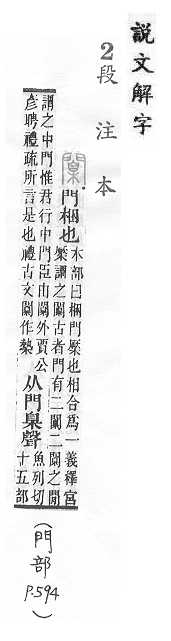 說文解字
2段注本
闑 門梱也 木部曰梱門橜也相合爲一義釋宮
橜謂之闑古者門有二闑二闑之閒
謂之中門惟君行中門臣由闑外賈公
彥聘禮疏所言是也禮古文闑作槷
从門臬聲 魚列切
十五部
(門部 P.594)